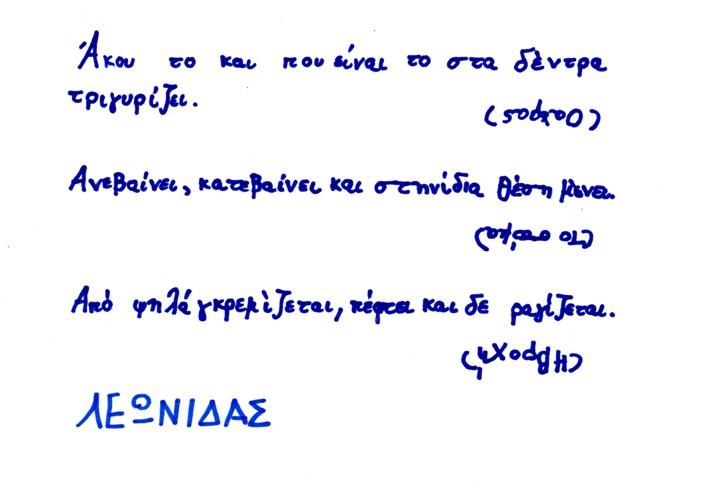 Άκου το και που είναι το στα δέντρα
τριγυρίζει.
(Ο αερας)
Ανεβαίνει, κατεβαίνει και στηνίδια θέση μενει.
(Το σκαλι)
Από ψηλά γκρεμίζεται, πέφτει και δε ραγίζεται.
(Η βροχή)
ΛΕΩΝΙΔΑΣ